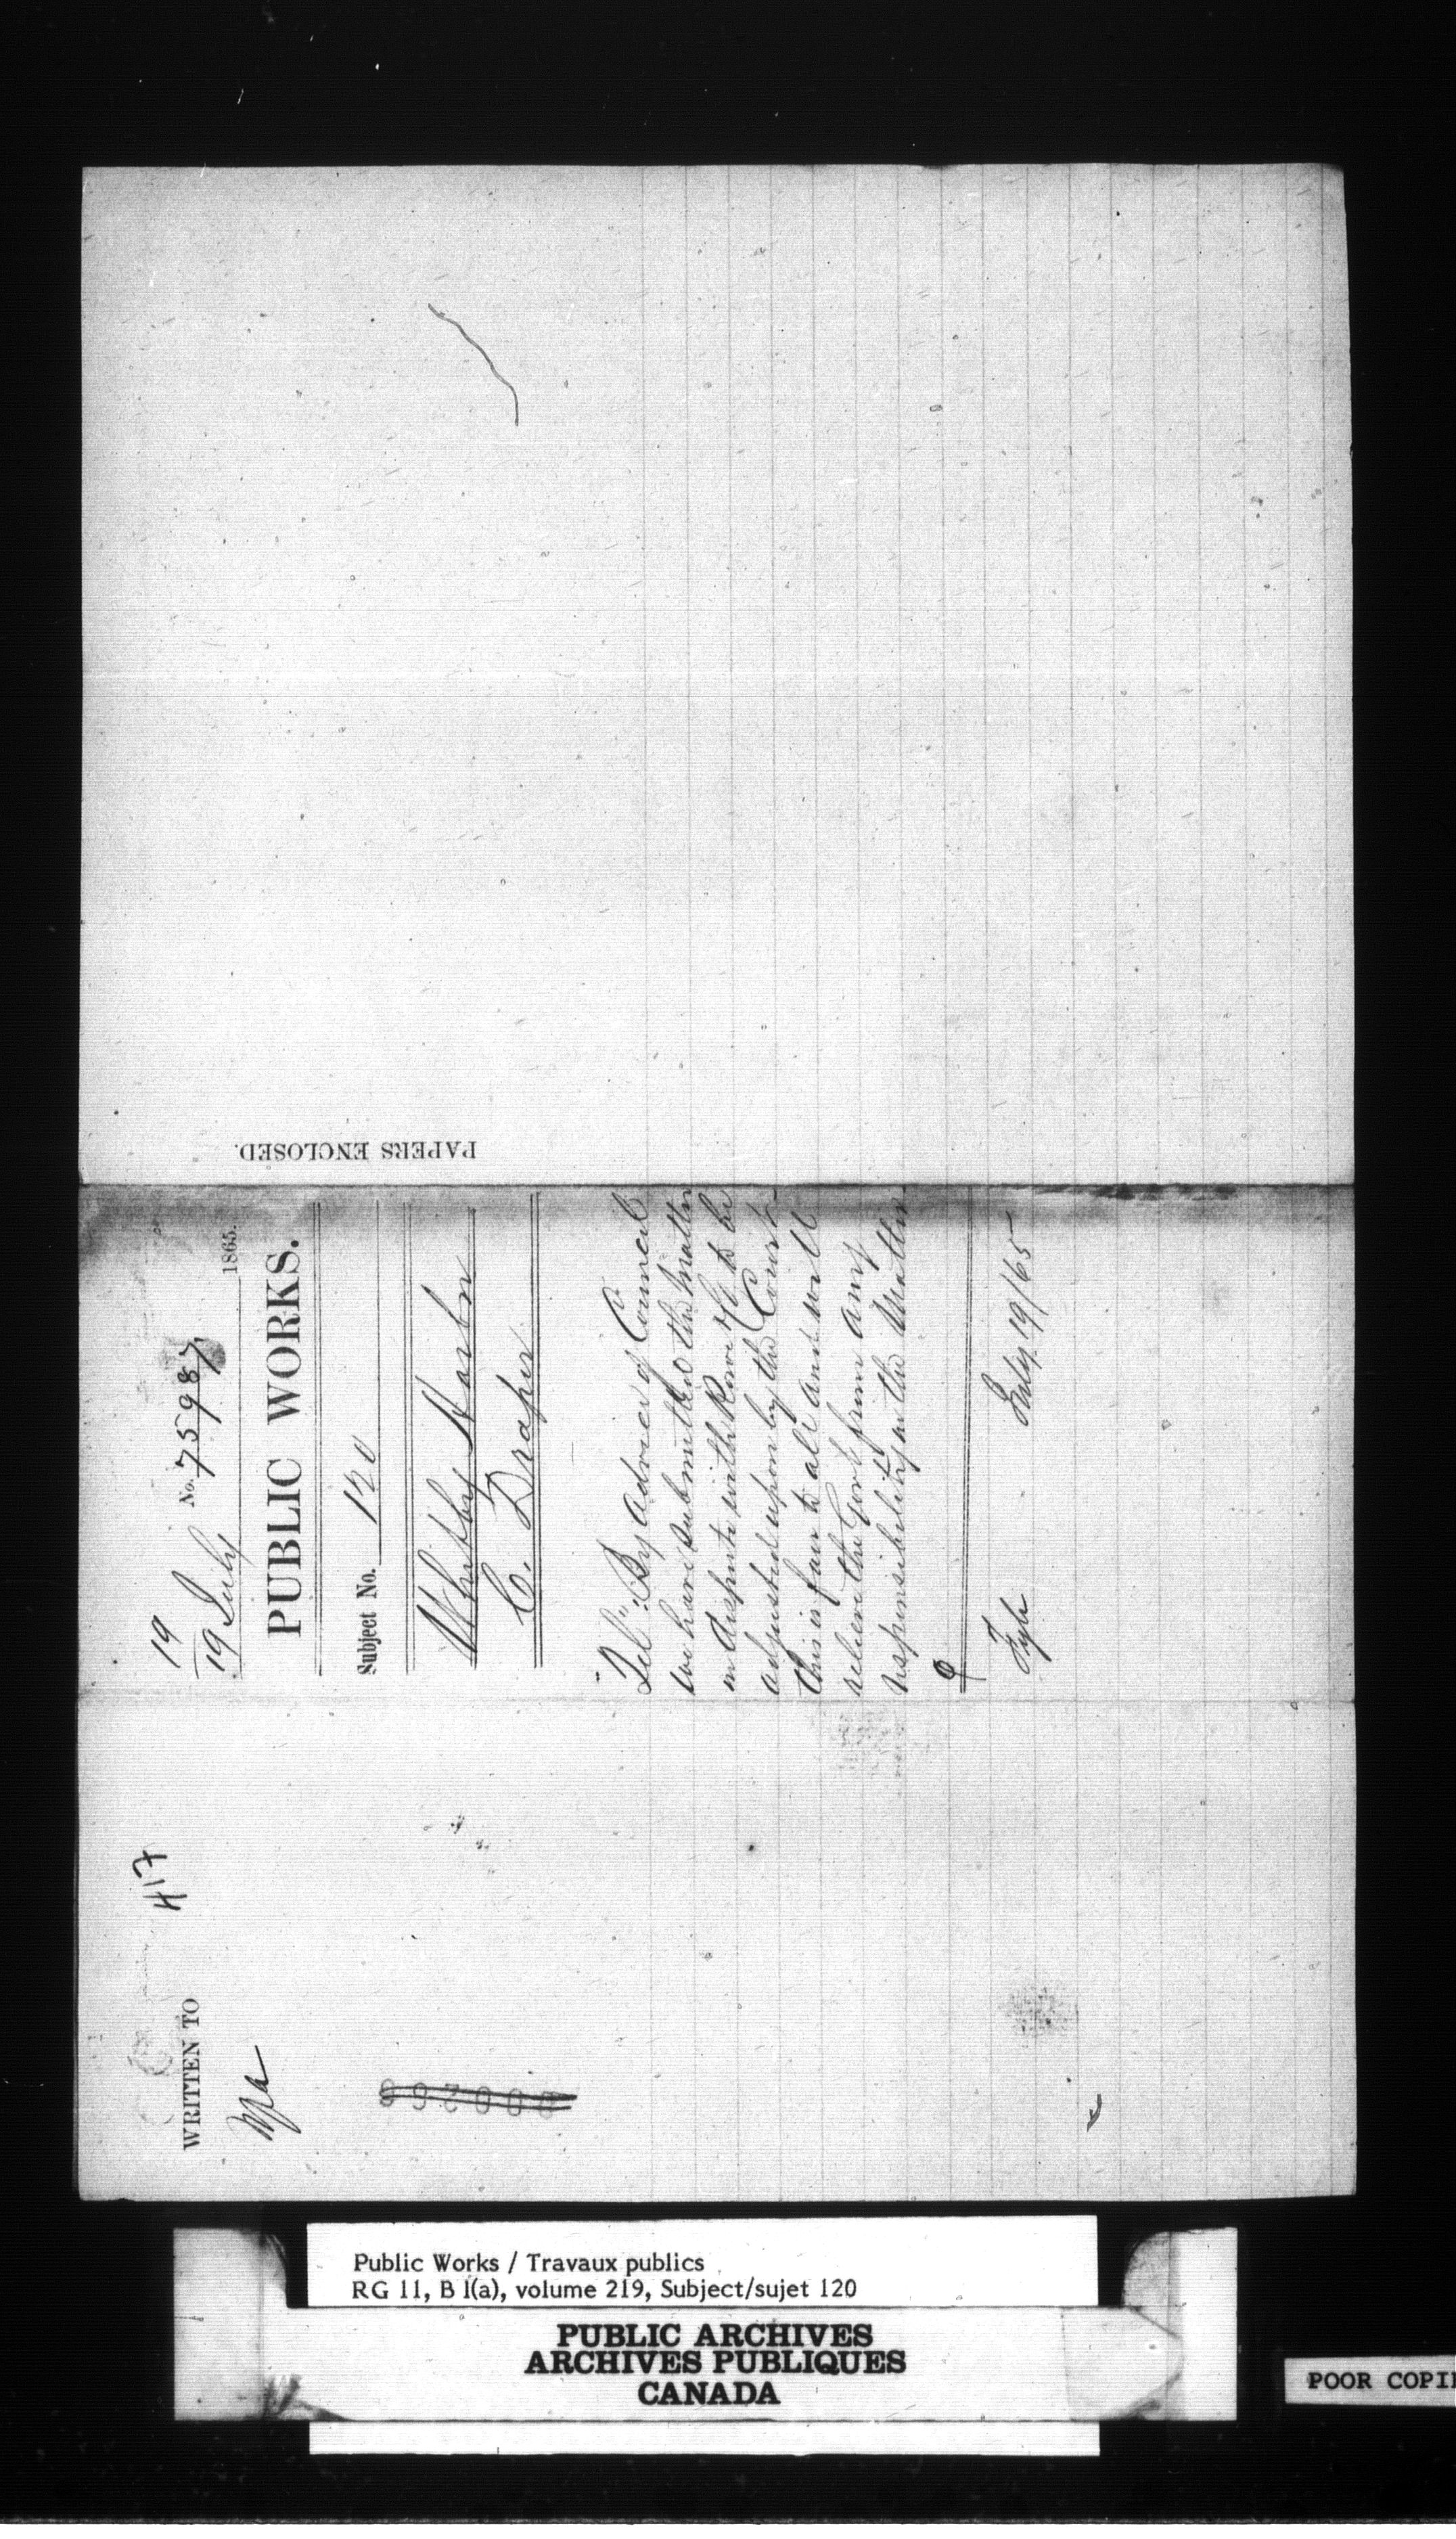 PAPERS ENCLOSED.
19
19 July No. 75987 1865.
PUBLIC WORKS.
Subject No. 120
Whitby Harbr
C. Draper
"Tel": By advice of Council
we have submitted the matter
in dispute with Rowe to be
adjusted upon by the Court
this is fair to all and will
relieve the Govt from any
responsibility in the Matter
July 19/65
417
WRITTEN TO
Public Works / Travaux publics
RG 11, B 1(a), volume 219, Subject/sujet 120
PUBLIC ARCHIVES
ARCHIVES PUBLIQUES
CANADA
POOR COPI